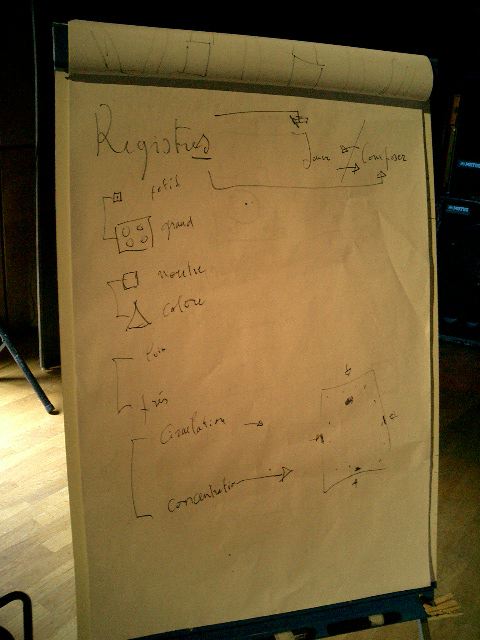 Registres
Jouer / Composer
petit
grand
neutre
coloré
loin
près
Circulation
Concentration